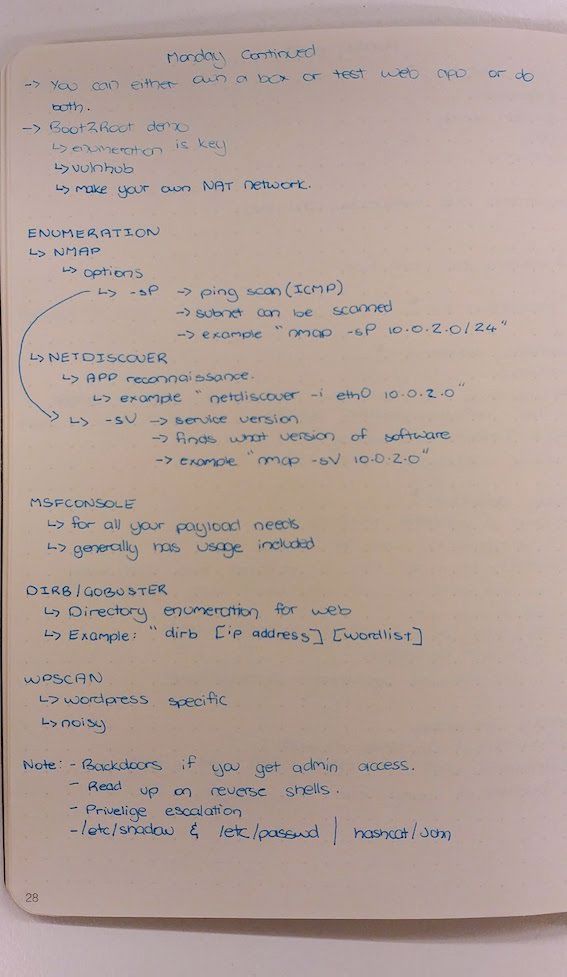 Monday Continued
-> You can either own a box or test web app or do
both.
-> Boot2Root demo
↳ enumeration is key
↳ vulnhub
↳ make your own NAT network.
ENUMERATION
↳ NMAP
↳ options
↳ -sP -> ping scan (ICMP)
-> subnet can be scanned
-> example "nmap -sP 10.0.2.0/24"
↳ NETDISCOVER
↳ APP reconnaissance.
↳ example "netdiscover -i eth0 10.0.2.0"
↳ -sV -> service version
-> finds what version of software
-> example "nmap -sV 10.0.2.0"
MSFCONSOLE
↳ for all your payload needs
↳ generally has usage included
DIRB/GOBUSTER
↳ Directory enumeration for web
↳ Example: " dirb [ip address] [wordlist]
WPSCAN
↳ wordpress specific
↳ noisy
Note: - Backdoors if you get admin access.
- Read up on reverse shells.
- Privelige escalation
- /etc/shadow & /etc/passwd | hashcat/John
28